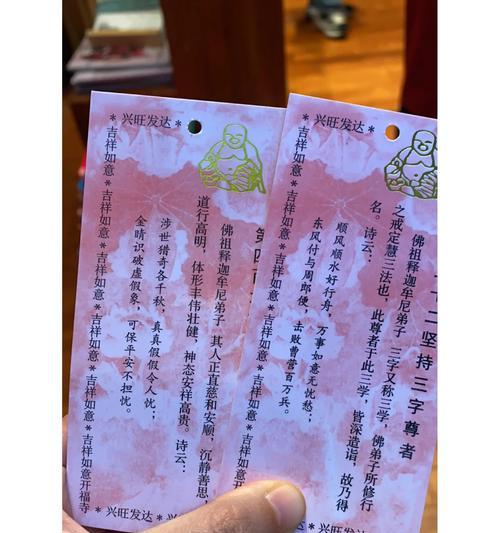 *兴旺发达*
第四百
佛祖释迦牟尼弟子 其人正直慈和安顺，沉静善思，
道行高明，体形丰伟壮健，神态安祥高贵。诗云：
涉世猎奇各千秋，真真假假令人忧；
金睛识破虚假象，可保平安不担忧。
*吉祥如意*吉祥如意*吉祥如意*吉祥如意*吉祥如意开福寺
*兴旺发达*
*兴旺发达*
十二坚持三字尊者
佛祖释迦牟尼弟子 三字又称三学，佛弟子所修行
之戒定慧三法也，此尊者于此三学，皆深造诣，故乃得
名。诗云：
顺风顺水好行舟，万事如意无忧愁；
东风付与周郎便，击败曹营百万兵。
*吉祥如意*吉祥如意*吉祥如意*吉祥如意*吉祥如意开福寺
*兴旺发达*